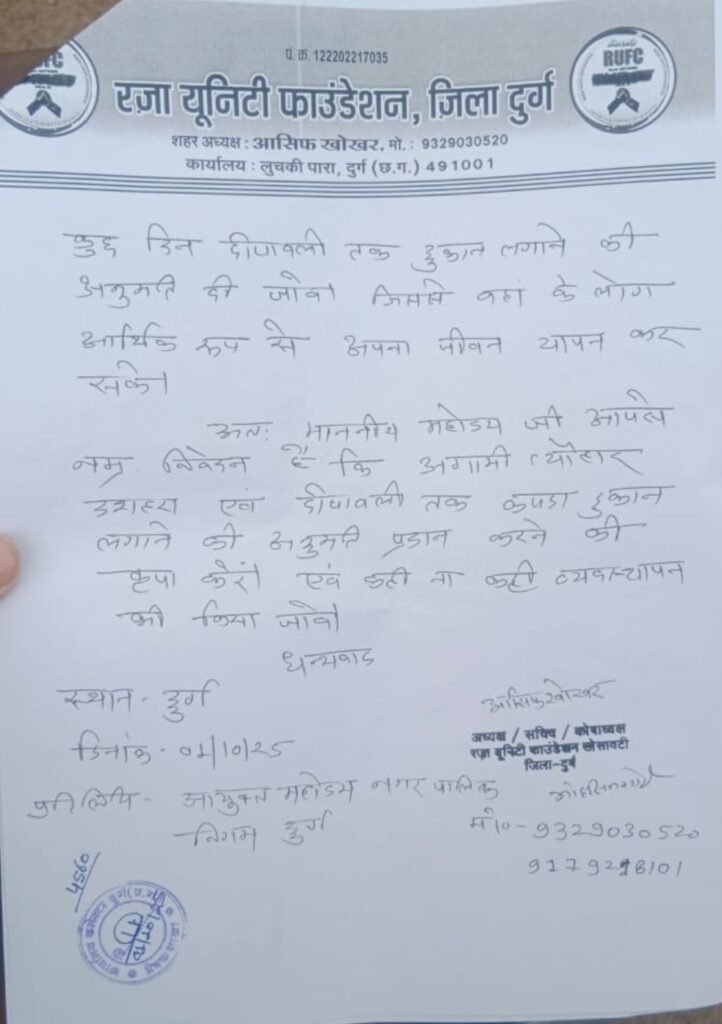 RUFC
पं. क्र. 122202217035
रज़ा यूनिटी फाउंडेशन, ज़िला दुर्ग
शहर अध्यक्ष : आसिफ खोखर, मो. : 9329030520
कार्यालय : लुचकी पारा, दुर्ग (छ.ग.) 491001
कुछ दिन दीपावली तक दुकान लगाने की
अनुमति दी जावे। जिससे वहां के लोग
आर्थिक रूप से अपना जीवन यापन कर
सके।
अतः माननीय महोदय जी आपसे
नम्र निवेदन है कि अगामी त्यौहार
दशहरा एवं दीपावली तक कपडा दुकान
लगाने की अनुमति प्रदान करने की
कृपा करें। एवं कही ना कही व्यवस्थापन
की किया जावे।
धन्यवाद
स्थान - दुर्ग
दिनांक - 01/10/25
प्रतिलिपि - आयुक्त महोदय नगर पालिक
निगम दुर्ग
आसिफ खोखर
अध्यक्ष / सचिव / कोषाध्यक्ष
रज़ा यूनिटी फाउंडेशन सोसायटी
जिला-दुर्ग
मो० - 9329030520
4560